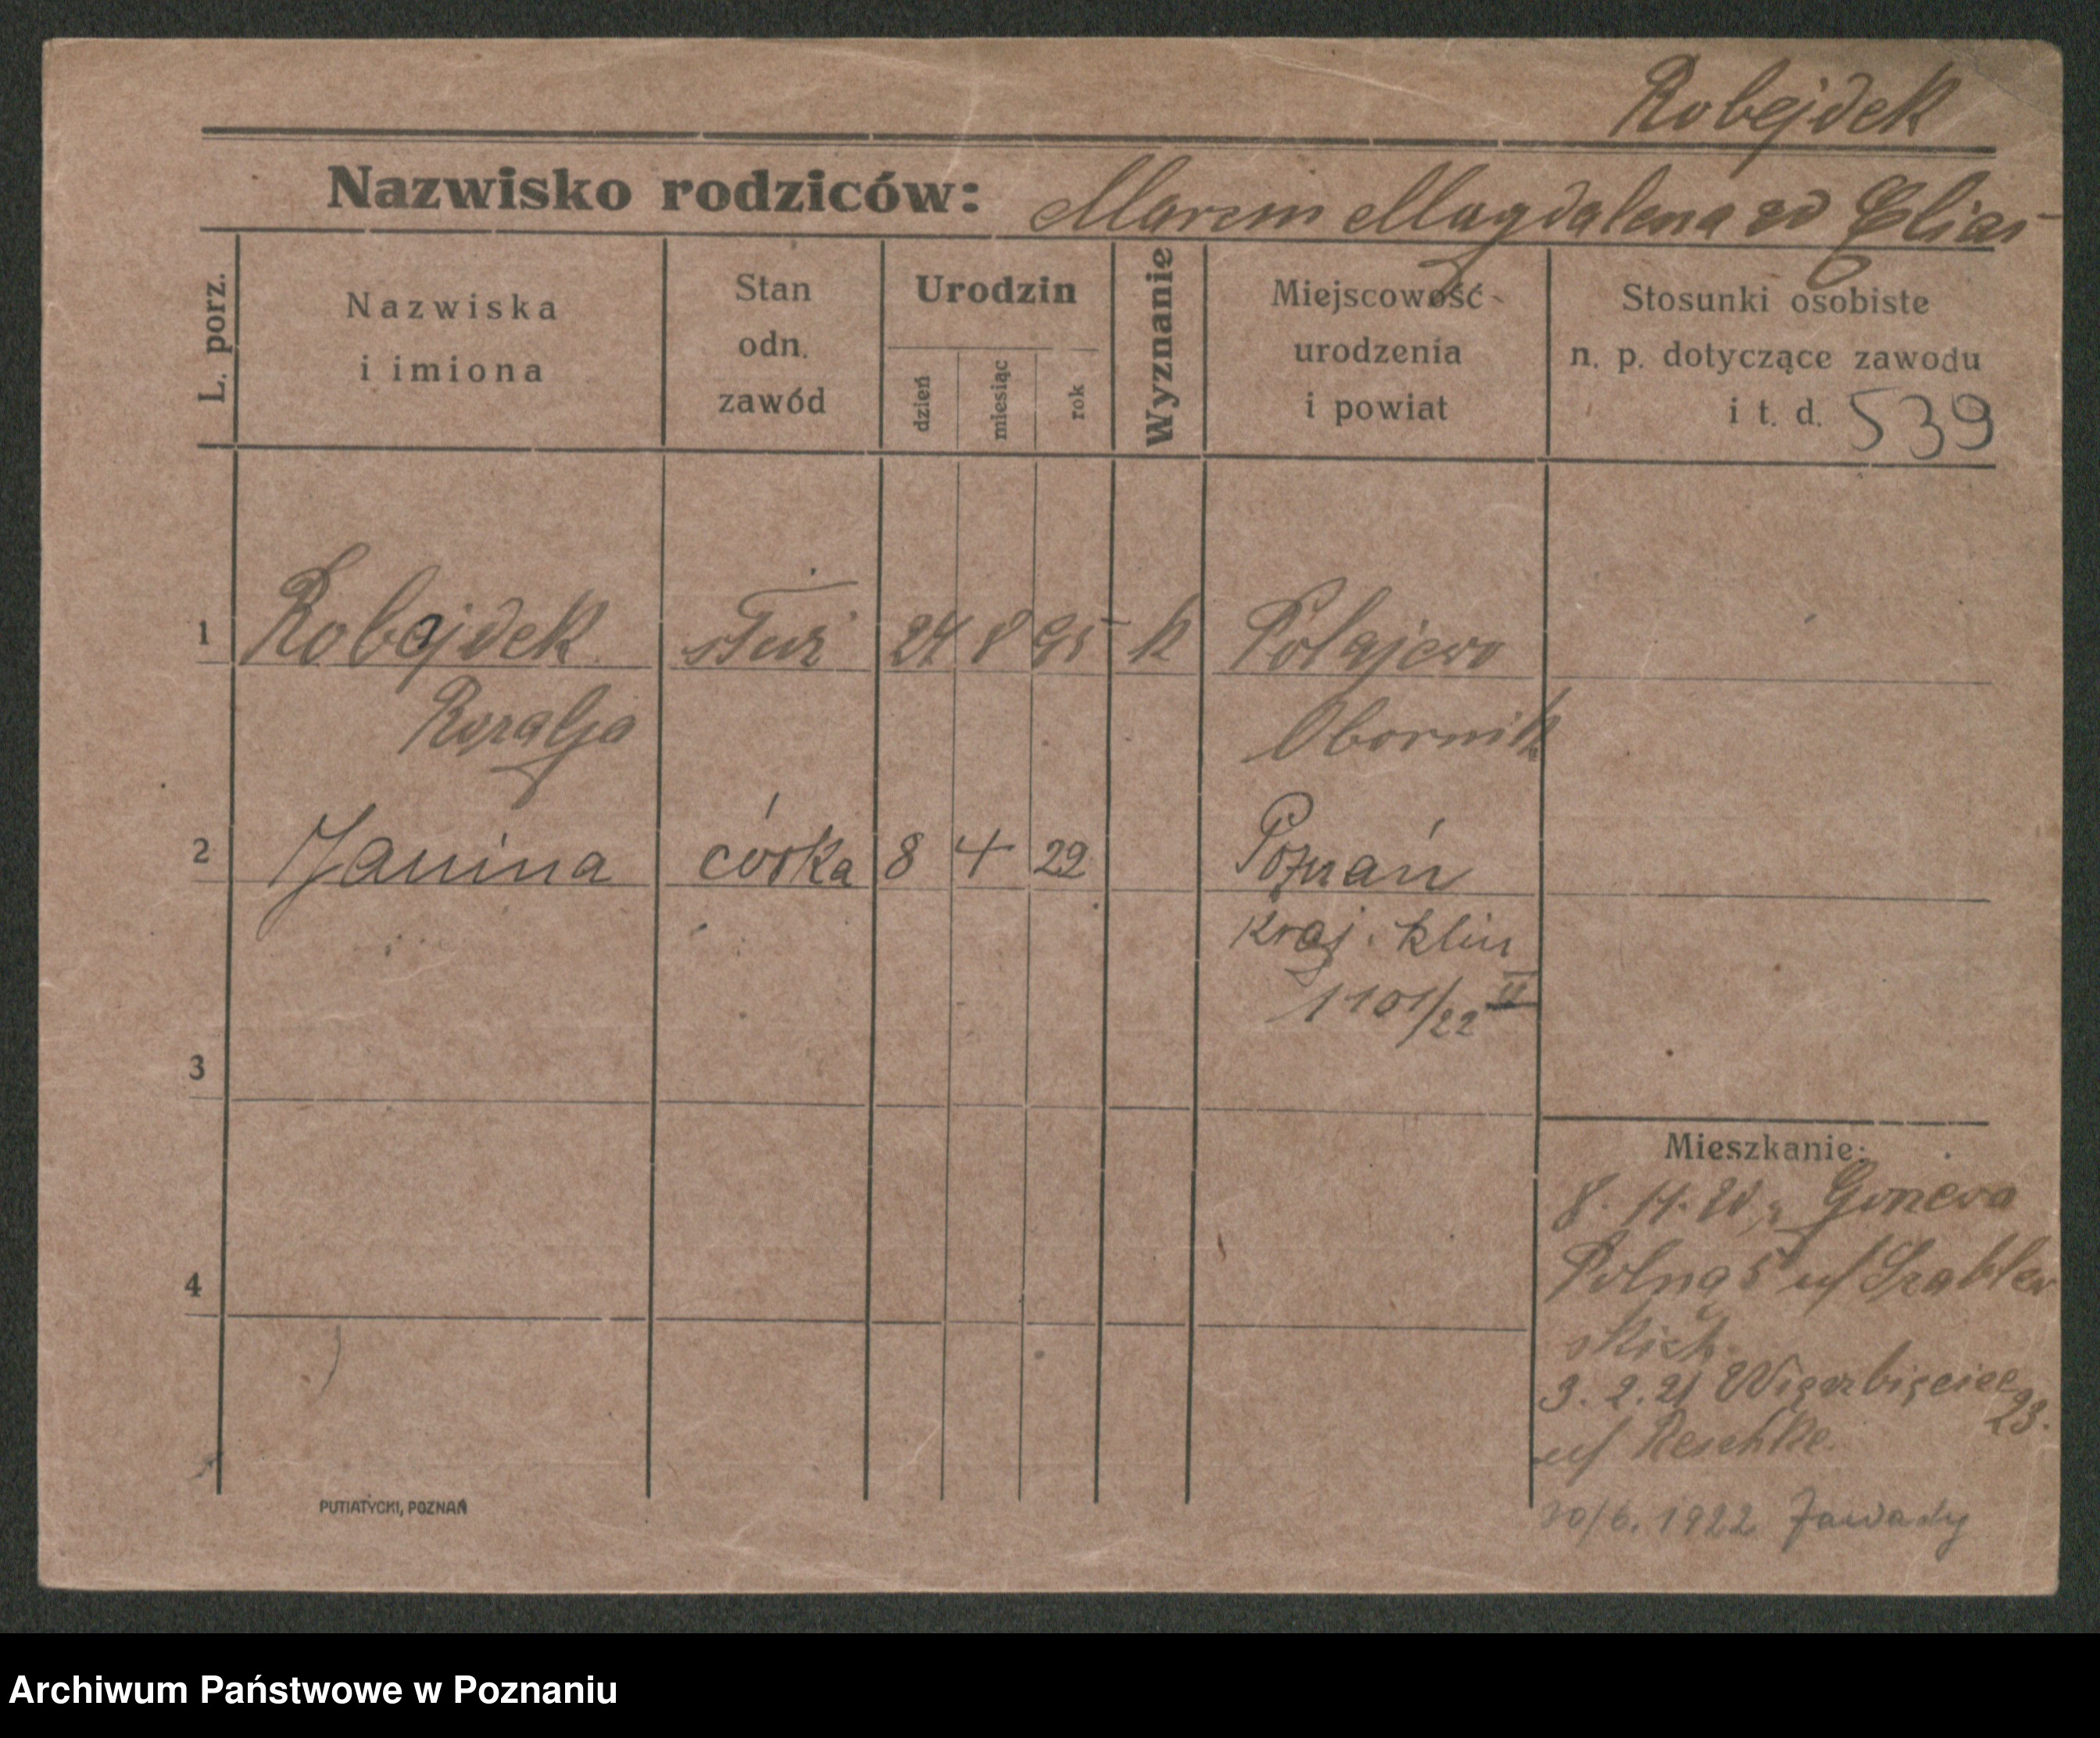 Robejdek
Nazwisko rodziców: Marcin Magdalena zd Elias
L. porz.
Nazwiska
i imiona
Stan
odn.
zawód
Urodzin
dzień
miesiąc
rok
Wyznanie
Miejscowość
urodzenia
i powiat
Stosunki osobiste
n. p. dotyczące zawodu
i t. d. 539
1 Robejdek służ 24 8 95 k Połajewo
Obornik
2 Janina córka 8 4 22 Poznań
Kraj. klin
1101/22 II
3
Mieszkanie:
4
Polna 5 u/ Szablew
skich
3. 2. 21 Wierzbięcice 23.
u/ Reschke.
PUTIATYCKI, POZNAŃ
30/6. 1922 Zawady
Archiwum Państwowe w Poznaniu